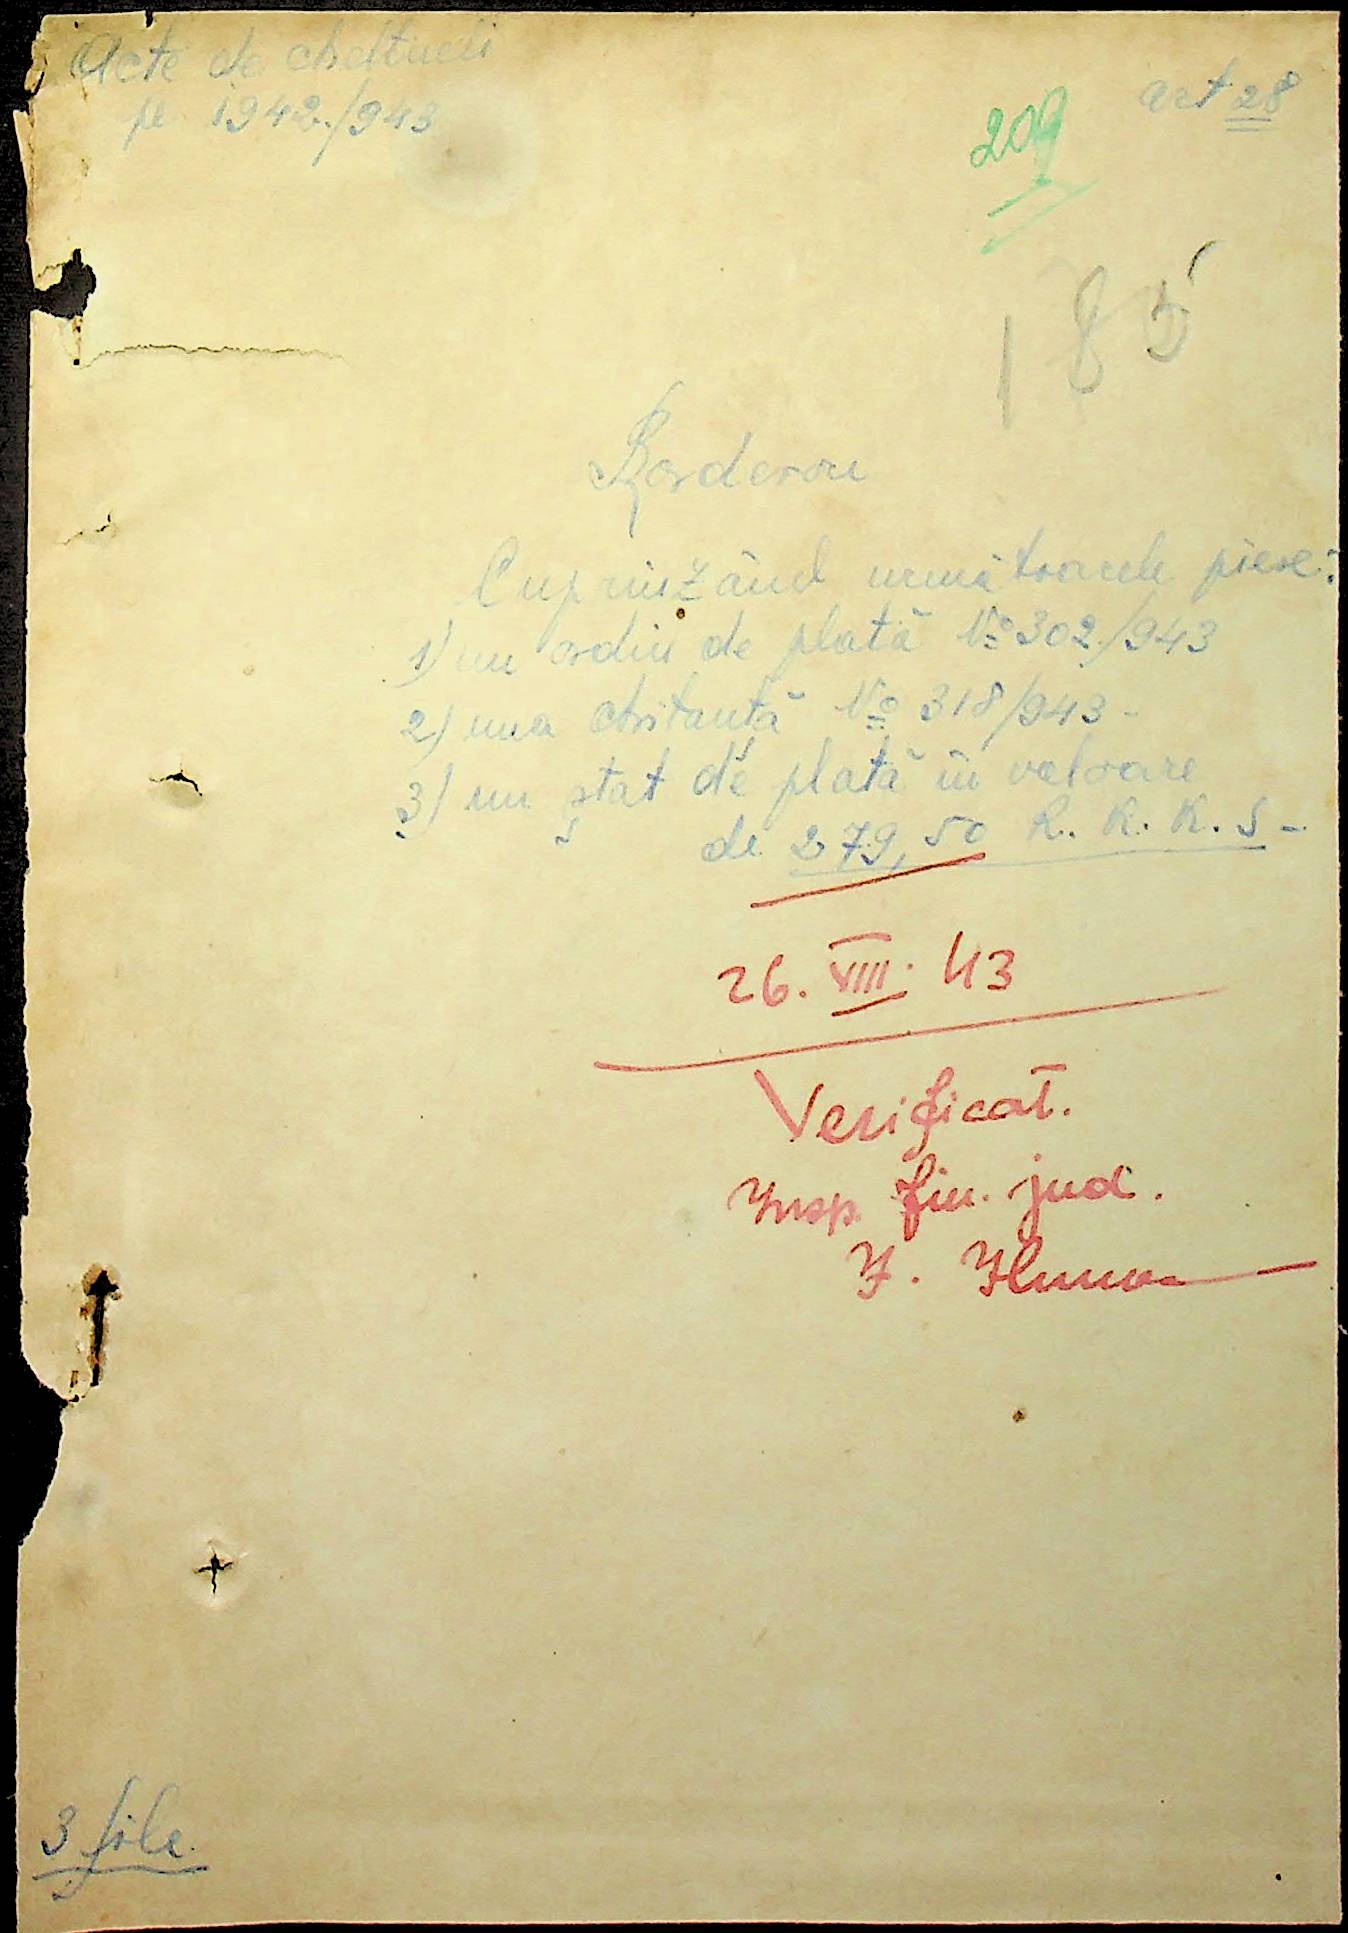 Acte de cheltueli
pe 1942./943
art 28
209
185
Borderou
Cuprinzând următoarele piese:
1) un ordin de plată № 302./943
2) una chitanță № 318/943-
3) un ștat de plată în valoare
de 279,50 R. K. K. S-
26. VIII. 43
Verificat.
Insp. fin. jud.
3 file